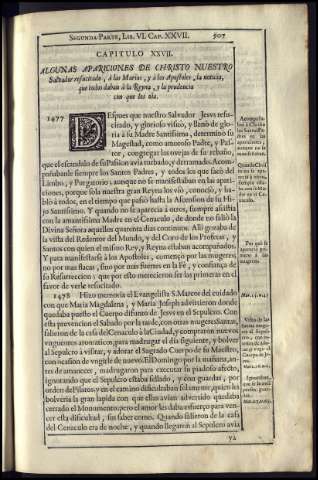 SEGUNDA PARTE, LIB. VI. CAP. XXVII. 507
CAPITULO XXVII.
ALGUNAS APARICIONES DE CHRISTO NUESTRO
Salvador resucitado, à las Marias, y à los Apostoles, la noticia,
que todos daban à la Reyna, y la prudencia
con que los oía.
1477 DEspues que nuestro Salvador Jesus resu-
citado, y glorioso visitó, y llenó de glo-
ria à su Madre Santissima, determinò su
Magestad, como amoroso Padre, y Pas-
tor, congregar las ovejas de su rebaño,
que el escandalo de su Passion avia turbado, y derramado. Acom-
pañabanle siempre los Santos Padres, y todos los que sacò del
Limbo, y Purgatorio, aunque no se manifestaban en las apari-
ciones, porque sola nuestra gran Reyna los viò, conociò, y ha-
blò à todos, en el tiempo que passò hasta la Ascension de su Hi-
jo Santissimo. Y quando no se aparecia à otros, siempre assistia
con la amantissima Madre en el Cenaculo, de donde no saliò la
Divina Señora aquellos quarenta dias continuos. Alli gozaba de
la vista del Redentor del Mundo, y del Coro de los Profetas, y
Santos con quien el mismo Rey, y Reyna estaban acompañados.
Y para manifestarse à los Apostoles, començò por las mugeres,
no por mas flacas, sino por mas fuertes en la Fè, y confiança de
su Resurreccion; que por esto merecieron ser las primeras en el
favor de verle resucitado.
1478 Hizo memoria el Evangelista S. Marcos del cuidado
con que Maria Magdalena, y Maria Joseph advirtieron donde
quedaba puesto el Cuerpo difunto de Jesus en el Sepulcro. Con
esta prevencion el Sabado por la tarde, con otras mugeres Santas,
salieron de la casa del Cenaculo à la Ciudad, y compraron nuevos
unguentos aromaticos, para madrugar el dia siguiente, y bolver
al Sepulcro à visitar, y adorar el Sagrado Cuerpo de su Maestro,
con ocasion de ungirle de nuevo. El Domingo por la mañana, an-
tes de amanecer, madrugaron para executar su piadoso afecto,
ignorando que el Sepulcro estaba sellado, y con guardas, por
orden de Pilatos; y en el camino dificultaban solamente, quien les
bolveria la gran lapida con que ellas avian advertido quedaba
cerrado el Monumento, pero el amor les daba esfuerço para ven-
cer esta dificultad, sin saber como. Quando salieron de la casa
del Cenaculo era de noche, y quando llegaron al Sepulcro avia
ya